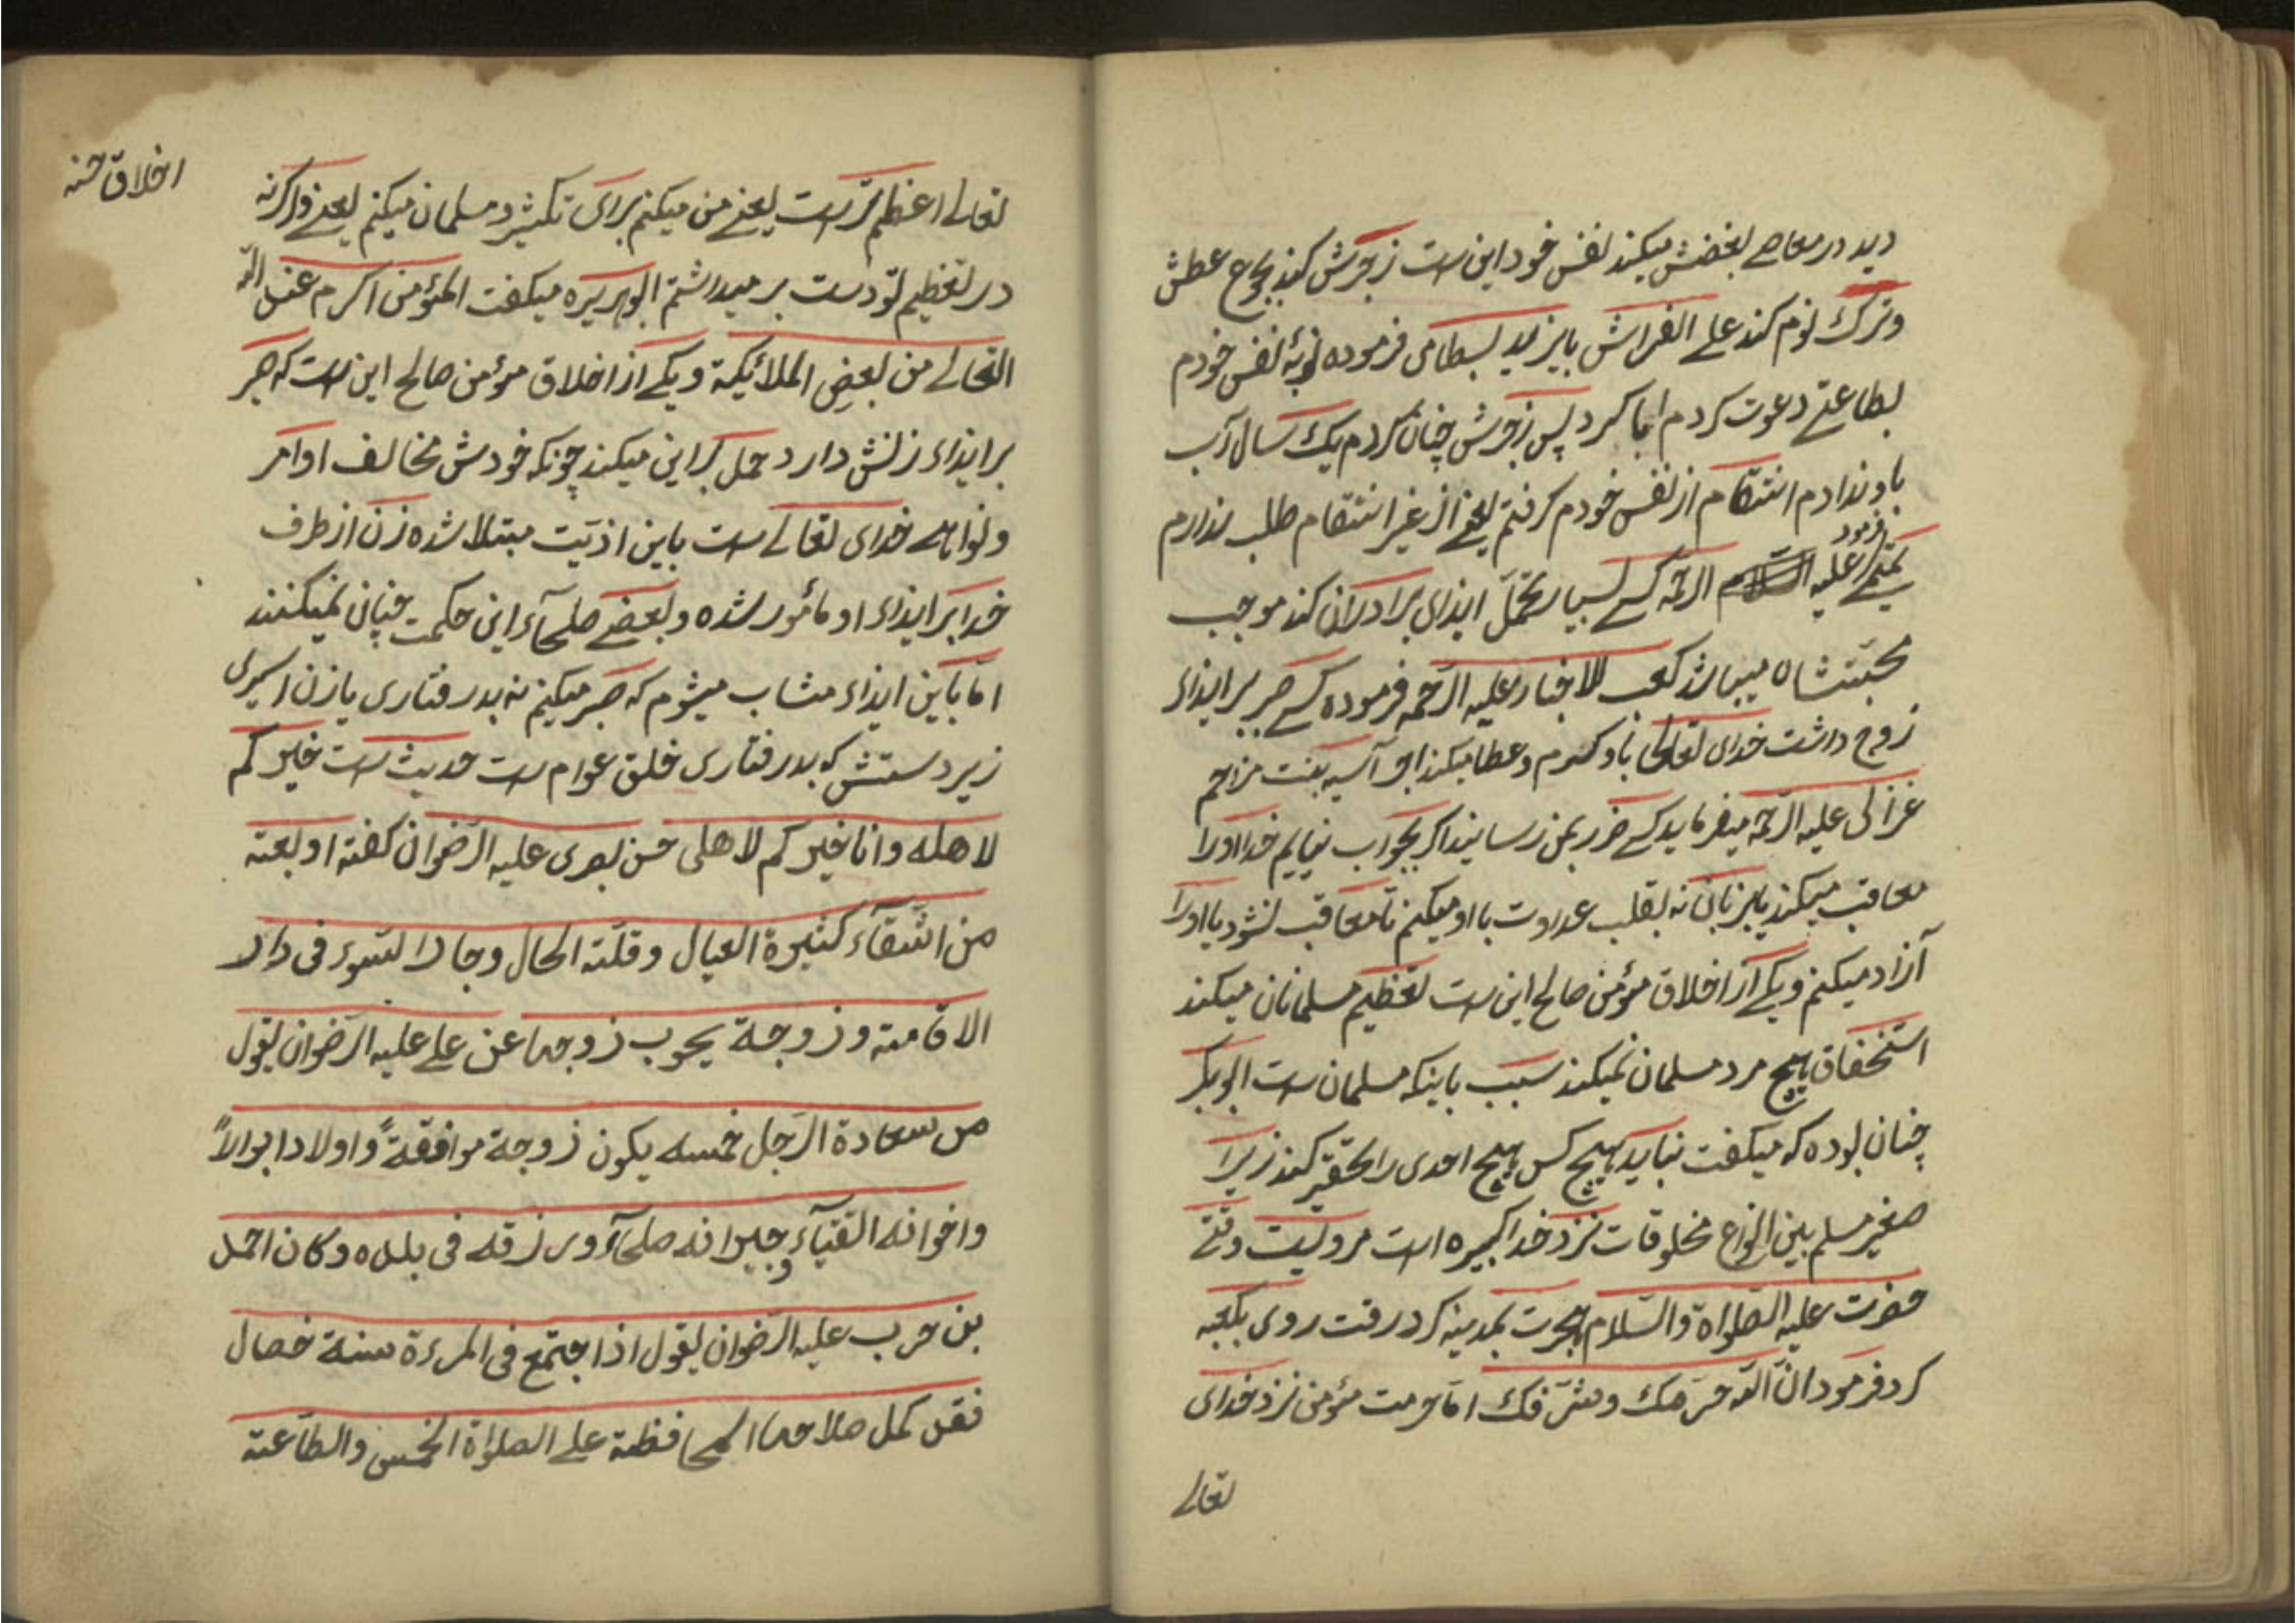 دید در معاصی بغضش میکند نفس خود این است زجرش کند بجوع عطش
وترك نوم کند علی الفراش بایزید بسطامی فرموده نفس خودم
بطاعتی دعوت کردم ابا کرد پس زجرش چنان کردم یك سال آب
باو ندادم انتقام از نفس خودم کرفتم یعنی از غیر انتقام طلب ندارم
فرمود
علیه الرحمه کسی بسیار تحمّل ایذای برادران کند موجب
محبّتشان میباشد کعب الاخبار علیه الرّحمه فرموده کسی صبر بر ایذاء
زوج داشت خدای تعالی باو کرم وعطا میکند اجر آسیه بنت مزاحم
غزالی علیه الرّحمه میفرماید کسی ضرر بمن رسانید اکر بجواب نیایم خدا اورا
معاقب میکند بزبانی نه بقلب عداوت با او میکنم تا معاقب نشود یا اورا
آزاد میکنم ویکی از اخلاق مؤمن صالح این است تعظیم مسلمانان میکند
استخفاف هیچ مرد مسلمان نمیکند سبب باینکه مسلمان است ابو بکر
چنان بوده که میکفت نباید هیچ کس هیچ احدی را تحقیر کند زیرا
صغیر مسلم بین انواع مخلوقات نزد خدا کبیره است مرویست وقتی
حضرت علیه الصّلواة والسّلام هجرت بمدینه کرد رفت روی بکعبه
کرد فرمود انّ الله حرّمك وشرّفك امّا حرمت مؤمن نزد خدای
تعالی
اخلاق حسنه
تعالی اعظم تر است یعنی من میکنم برای تکثیر مسلمان میکنم یعنی واکرنه
در تعظیم تو دست بر میداشتم ابو هریره میکفت المؤمن اکرم عند الله
التعالی من بعض الملائیکة ویکی از اخلاق مؤمن صالح این است که صبر
بر ایذاء زنش دارد حمل بر این میکند چونکه خودش مخالف اوامر
ونواهی خدای تعالی است باین اذیّت مبتلا شده زن از طرف
خدا بر ایذاء او مأمور شده وبعضی صلحآء این حکمت چنان نمیکنند
امّا باین ایذاء مثاب میشوم که صبر میکنم نه بدرفتاری با زن اسیری
زیر دستش که بدرفتاری خلق عوام است حدیث است خیرکم
لاهله وانا خیرکم لاهلی حسن بصری علیه الرّضوان کفته اربعة
من الشّقآء کثیرة العیال وقلّة الحال وجار السّوء فی دار
الاقامة وزوجة یحوب زوجها عن علی علیه الرّضوان یقول
من سعادة الرّجل خمسه یکون زوجة موافقةً واولادا ابرالاً
واخوانه التقیآء وجیرانه صلحآء ورزقه فی بلده وکان احمد
بن حرب علیه الرّضوان یقول اذا اجتمع فی المرءة ستة خصال
فقد کمل صلاحها المحافظة علی الصلواة الخمس والطّاعة